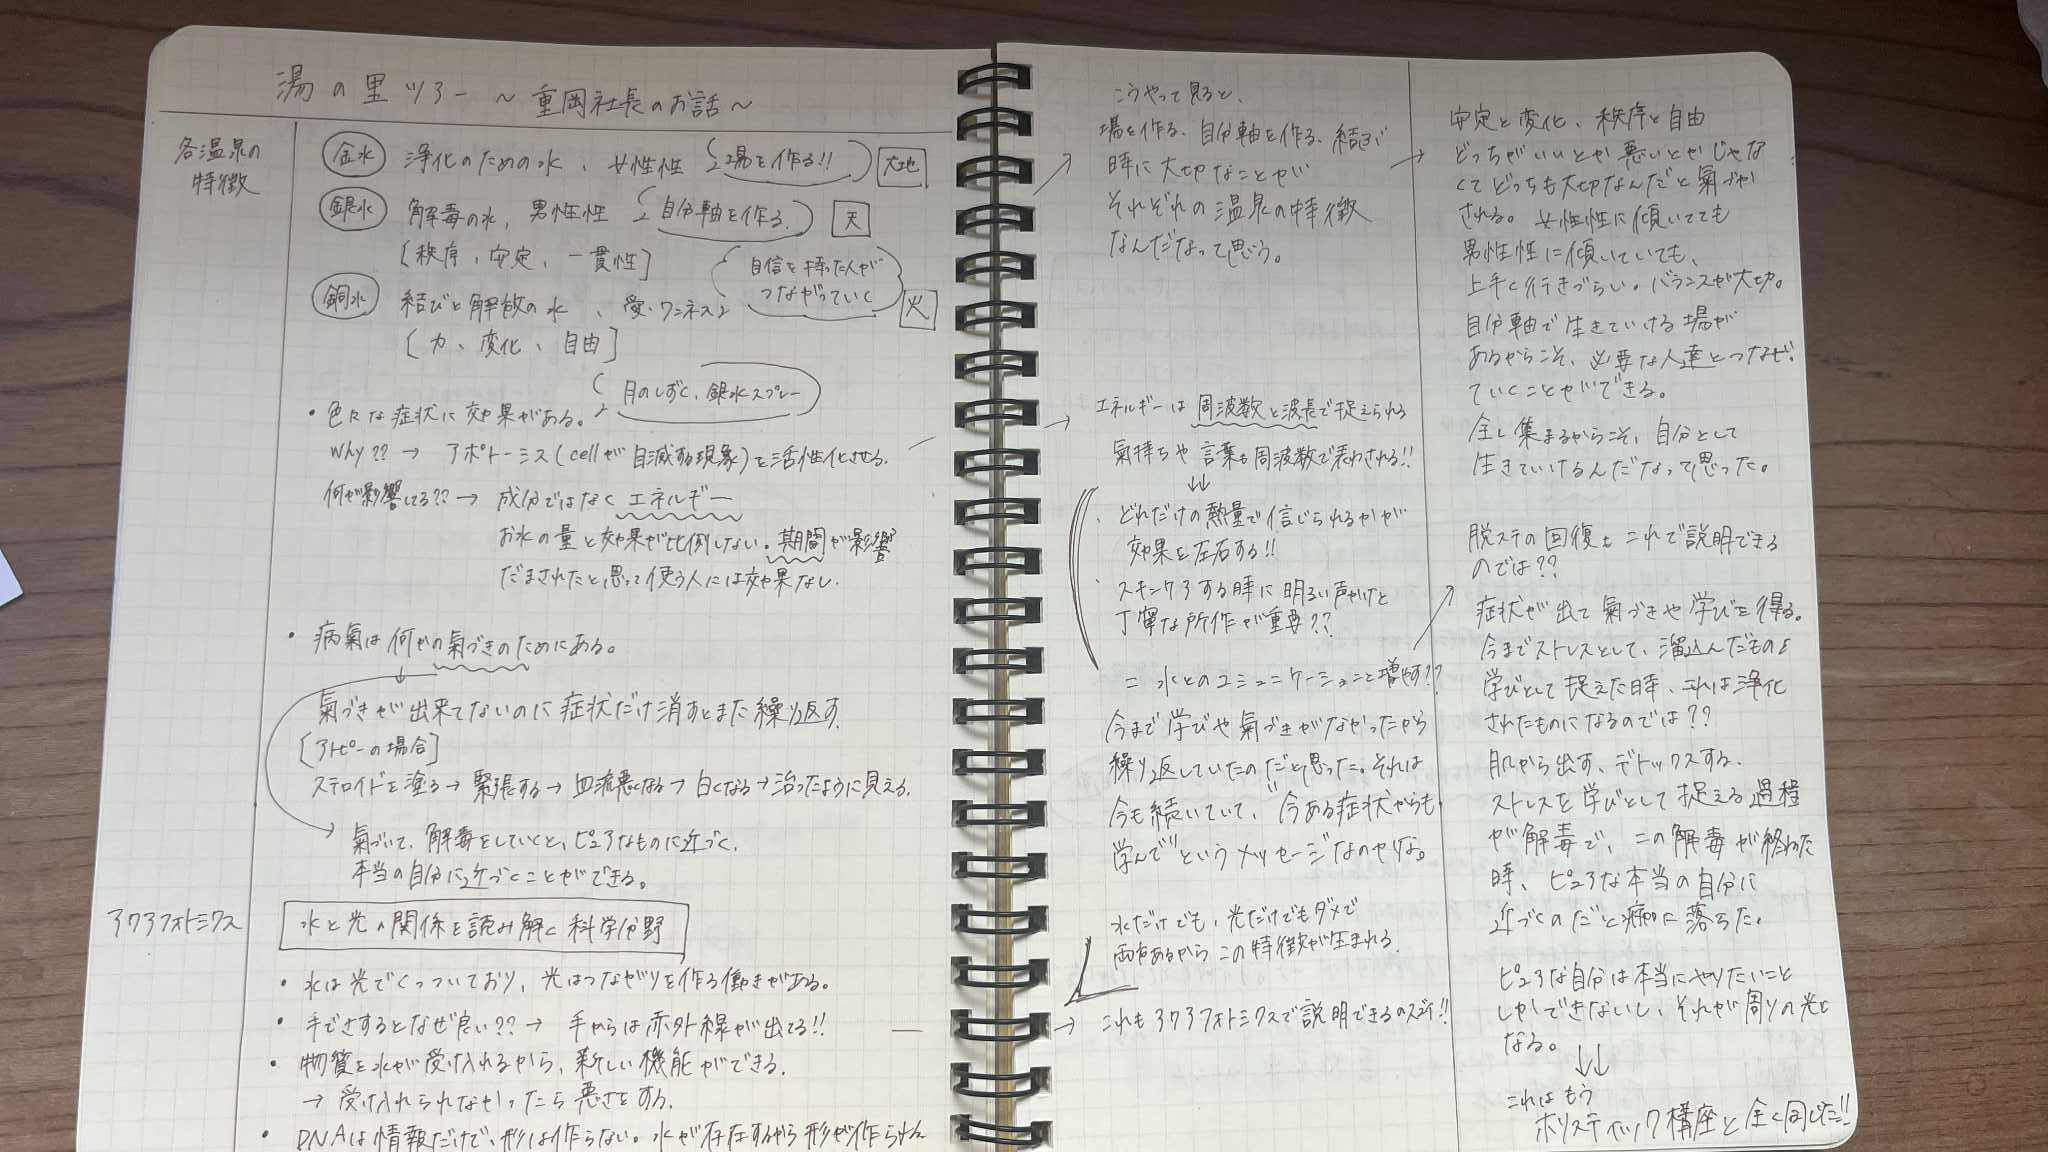 湯の里ツアー ~ 重岡社長のお話~
各温泉の
特徴
金水 浄化のための水、女性性 場を作る!! 大地
銀水 解毒の水、男性性 自分軸を作る. 天
[秩序、安定、一貫性]
銅水 結びと解放の水、愛・ワンネス
自信を持った人が
つながっていく 火
[力、変化、自由]
月のしずく、銀水スプレー
・色々な症状に効果がある。
Why?? → アポトーシス(cellが自滅する現象)を活性化させる.
何が影響してる?? → 成分ではなくエネルギー
お水の量と効果が比例しない。期間が影響
だまされたと思って使う人には効果なし.
・病氣は何かの氣づきのためにある。
氣づきが出来てないのに症状だけ消すとまた繰り返す.
[アトピーの場合]
ステロイドを塗る→緊張する→血流悪くなる→白くなる→治ったように見える.
氣づいて、解毒をしていくと、ピュアなものに近づく.
本当の自分に近づくことができる。
アクアフォトミクス
水と光の関係を読み解く科学分野
・水は光でくっついており、光はつながりを作る働きがある。
・手でさするとなぜ良い?? → 手からは赤外線が出てる!!
・物質を水が受け入れるから、新しい機能ができる.
→ 受け入れられなかったら悪さをする.
・DNAは情報だけで、形は作らない。水が存在するから形が作られる
こうやって見ると、
場を作る、自分軸を作る、結ぶ
時に大切なことが
それぞれの温泉の特徴
なんだなって思う。
エネルギーは周波数と波長で捉えられる
氣持ちや言葉も周波数で表わされる!!
↓↓
・どれだけの熱量で信じられるかが
効果を左右する!!
・スキンケアする時に明るい声かけと
丁寧な所作が重要??
= 水とのコミュニケーションを増やす??
今まで学びや氣づきがなかったから
繰り返していたのだと思った。それは
今も続いていて、"今ある症状からも
学んで"というメッセージなのかな。
水だけでも、光だけでもダメで
両方あるからこの特徴が生まれる.
→ これもアクアフォトミクスで説明できるのでは!!
安定と変化、秩序と自由
どっちがいいとか悪いとかじゃな
くてどっちも大切なんだと氣づか
される。女性性に傾いてても
男性性に傾いていても、
上手く行きづらい。バランスが大切。
自分軸で生きていける場が
あるからこそ、必要な人達とつながっ
ていくことができる。
全し集まるからこそ、自分として
生きていけるんだなって思った。
脱ステの回復もこれで説明できる
のでは??
症状が出て氣づきや学びを得る。
今までストレスとして、溜込んだものを
学びとして捉えた時、これは浄化
されたものになるのでは??
肌から出す、デトックスする.
ストレスを学びとして捉える過程
が解毒で、この解毒が終わった
時、ピュアな本当の自分に
近づくのだと腑に落ちた。
ピュアな自分は本当にやりたいこと
しかできないし、それが周りの光と
なる。 ↓↓
これはもう
ホリスティック講座と全く同じだ!!